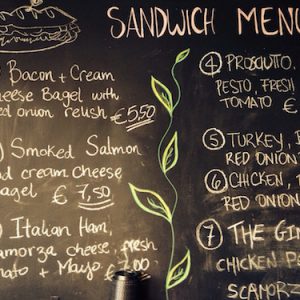 SANDWICH MENU
Bacon + Cream
Cheese Bagel with
red onion relish €5,50
Smoked Salmon
and cream cheese
bagel € 7,50
Italian Ham,
scamorza cheese, fresh
tomato + Mayo €7,00
④ PROSCIUTTO
PESTO, FRESH
TOMATO €
⑤ TURKEY,
RED ONION
⑥ CHICKEN,
RED ONION
⑦ THE GIN
CHICKEN
SCAMORZ